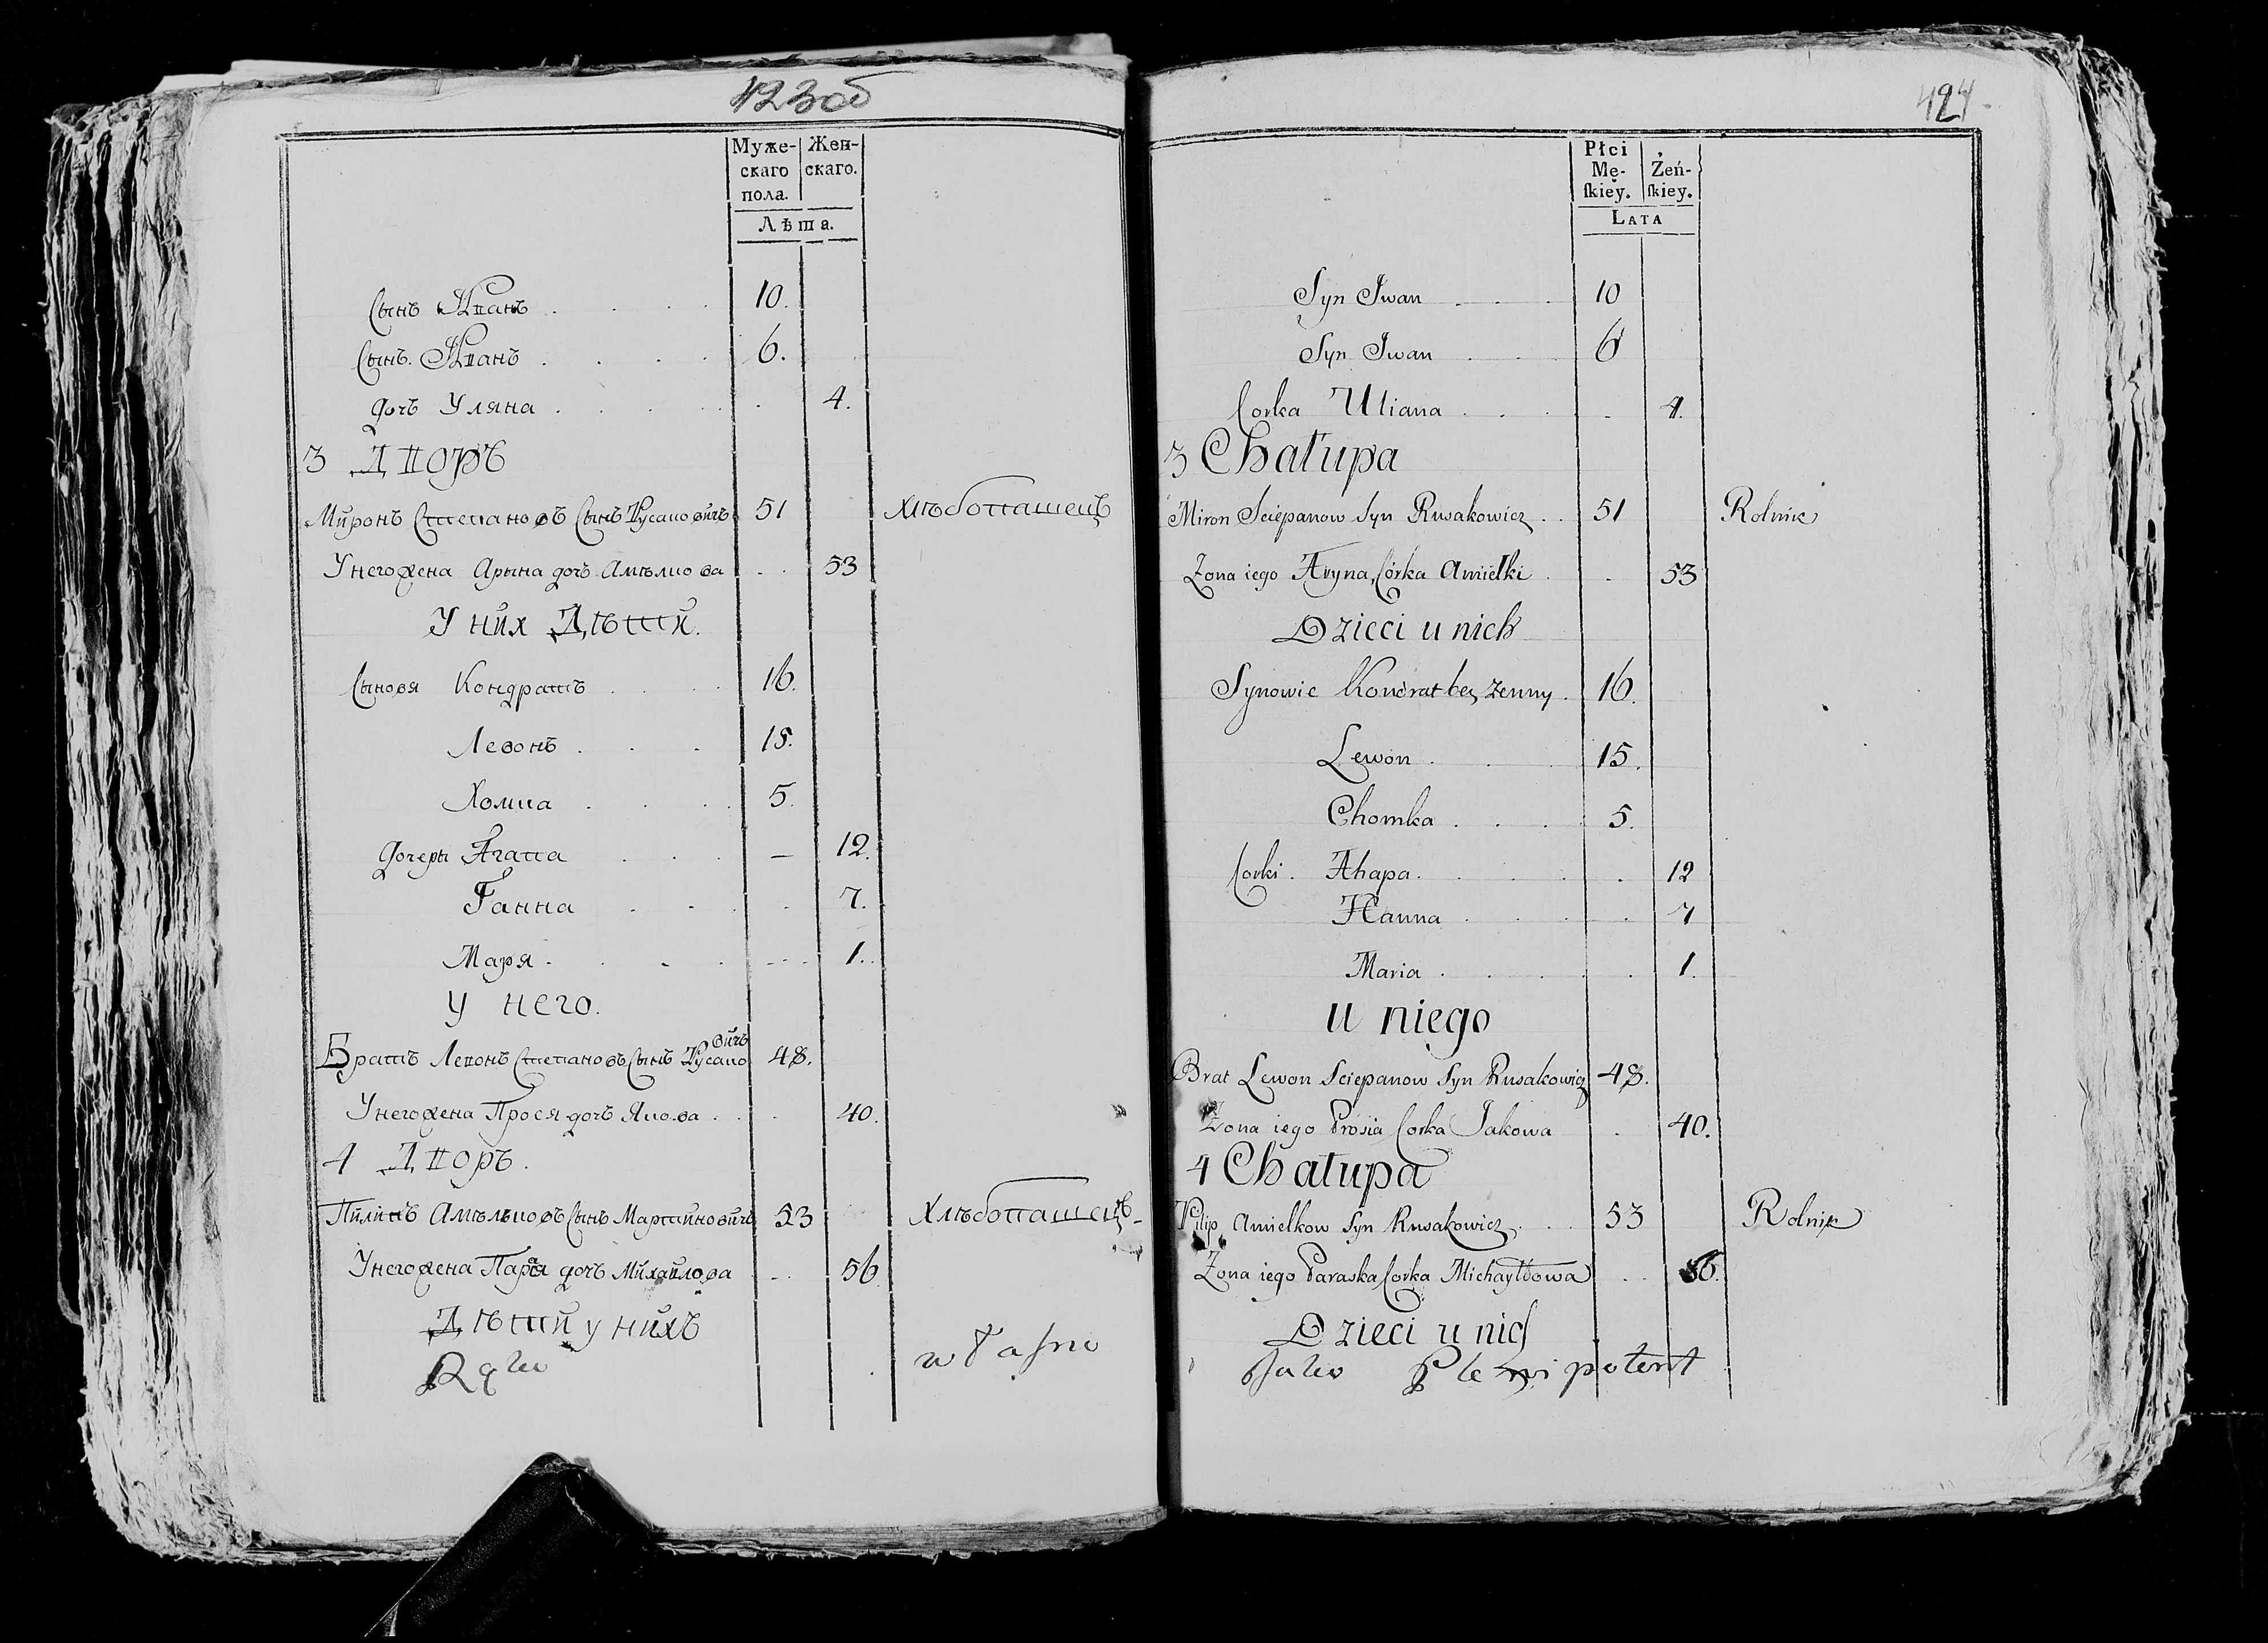 423об
Муже-
скаго
пола.
Жен-
скаго.
Лѣта.
Сынъ Иванъ 10.
Сынъ Иванъ 6.
дочъ Уляна 4.
3 Дворъ
Миронъ Степановъ Сынъ Русаковичъ 51 Хлѣбопашецъ
У него жена Арына дочъ Амѣлкова 53
У них Дѣти.
Сыновя Кондратъ 16.
Левонъ 15.
Хомка 5.
Дочеры Агапа — 12.
Ганна 7.
Маря 1.
У него.
Братъ Левонъ Степановъ Сынъ Русаковичъ 48.
У него жена Прося дочъ Якова 40.
4 Дворъ.
Пилипъ Амѣльковъ Сынъ Мартиновичъ 53 Хлѣбопашецъ
У него жена дочъ Михайлова 56
Дѣти у нихъ
własno
424
Płci
Mę-
ſkiey.
Żeń-
ſkiey.
Lata
Syn Iwan 10
Syn Iwan 6
Corka Uliana 4.
3 Chałupa
Miron Sciepanow Syn Rusakowicz 51 Rolnik
Zona iego Aryna Córka Amiełki 53
Dzieci u nich
Synowie Kondrat bez zenny 16.
Lewon 15.
Chomka 5.
Corki Ahapa 12
Hanna 7
Maria 1.
u niego
Brat Lewon Sciepanow Syn Rusakowicz 48.
Zona iego Prosia Corka Jakowa 40.
4 Chałupa
Pilip Amielkow Syn Rusakowicz 53 Rolnik
Zona iego Paraska Corka Michayłowa 56.
Dzieci u nich
Plenipotent